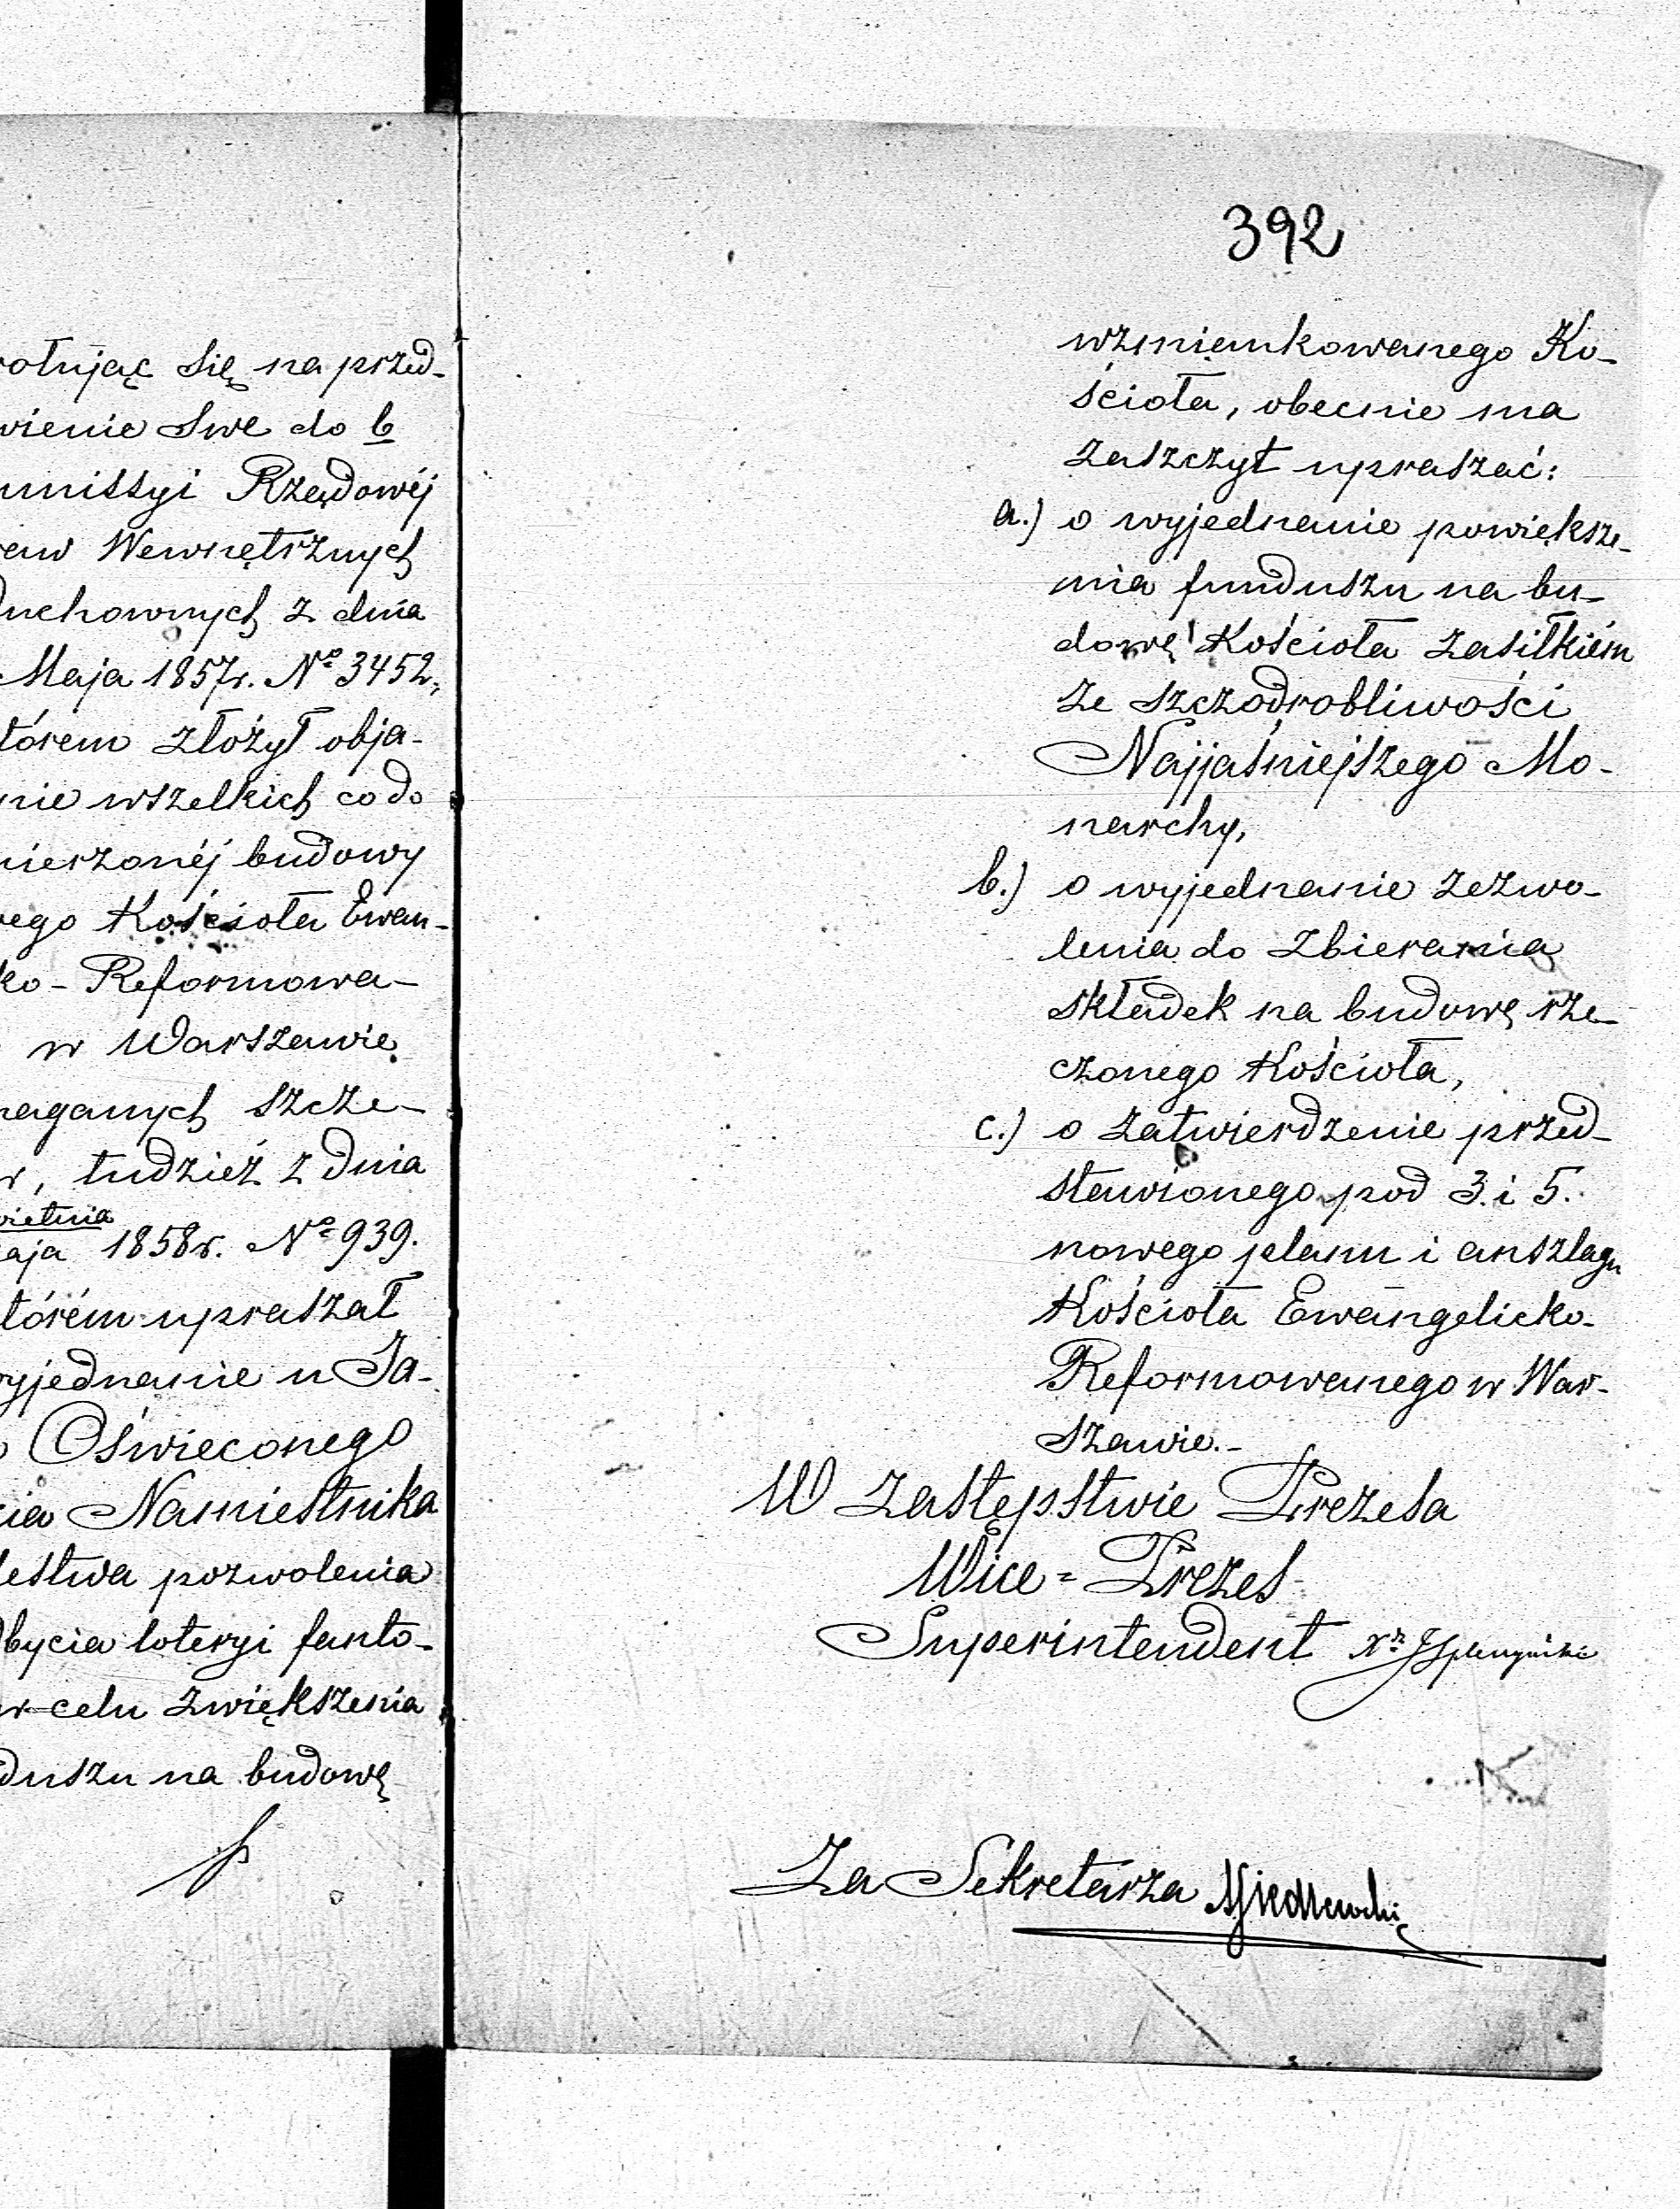 ołując się na przed-
wienie Swe do b
missyi Rządowéj
raw Wewnętrznych
Duchownych z dnia
Maja 1857r. Nº 3452,
tórem złożył obja-
nie wszelkich co do
mierzonéj budowy
ego Kościoła Ewan-
ko-Reformowa-
w Warszawie
maganych szcze-
w, tudzież z dnia
wietnia
aja 1858r. Nº 939.
tórém upraszał
yjednanie u Ja-
Oświeconego
cia Namiestnika
lestwa pozwolenia
dbycia loteryi fanto-
w celu zwiększenia
duszu na budowę
392
wzmiankowanego Ko-
ścioła, obecnie ma
zaszczyt upraszać:
a.) o wyjednanie powiększe-
nia funduszu na bu-
dowę Kościoła zasiłkiém
ze szczodrobliwości
Najjaśniejszego Mo-
narchy,
b.) o wyjednanie zezwo-
lenia do zbierania
składek na budowę rze-
czonego Kościoła,
c.) o zatwierdzenie przed-
stawionego pod 3. i 5.
nowego planu i anszlagu
Kościoła Ewangelicko-
Reformowanego w War-
szawie.-
W zastępstwie Prezesa
Wice=Prezes
Superintendent Xz
Za Sekretarza